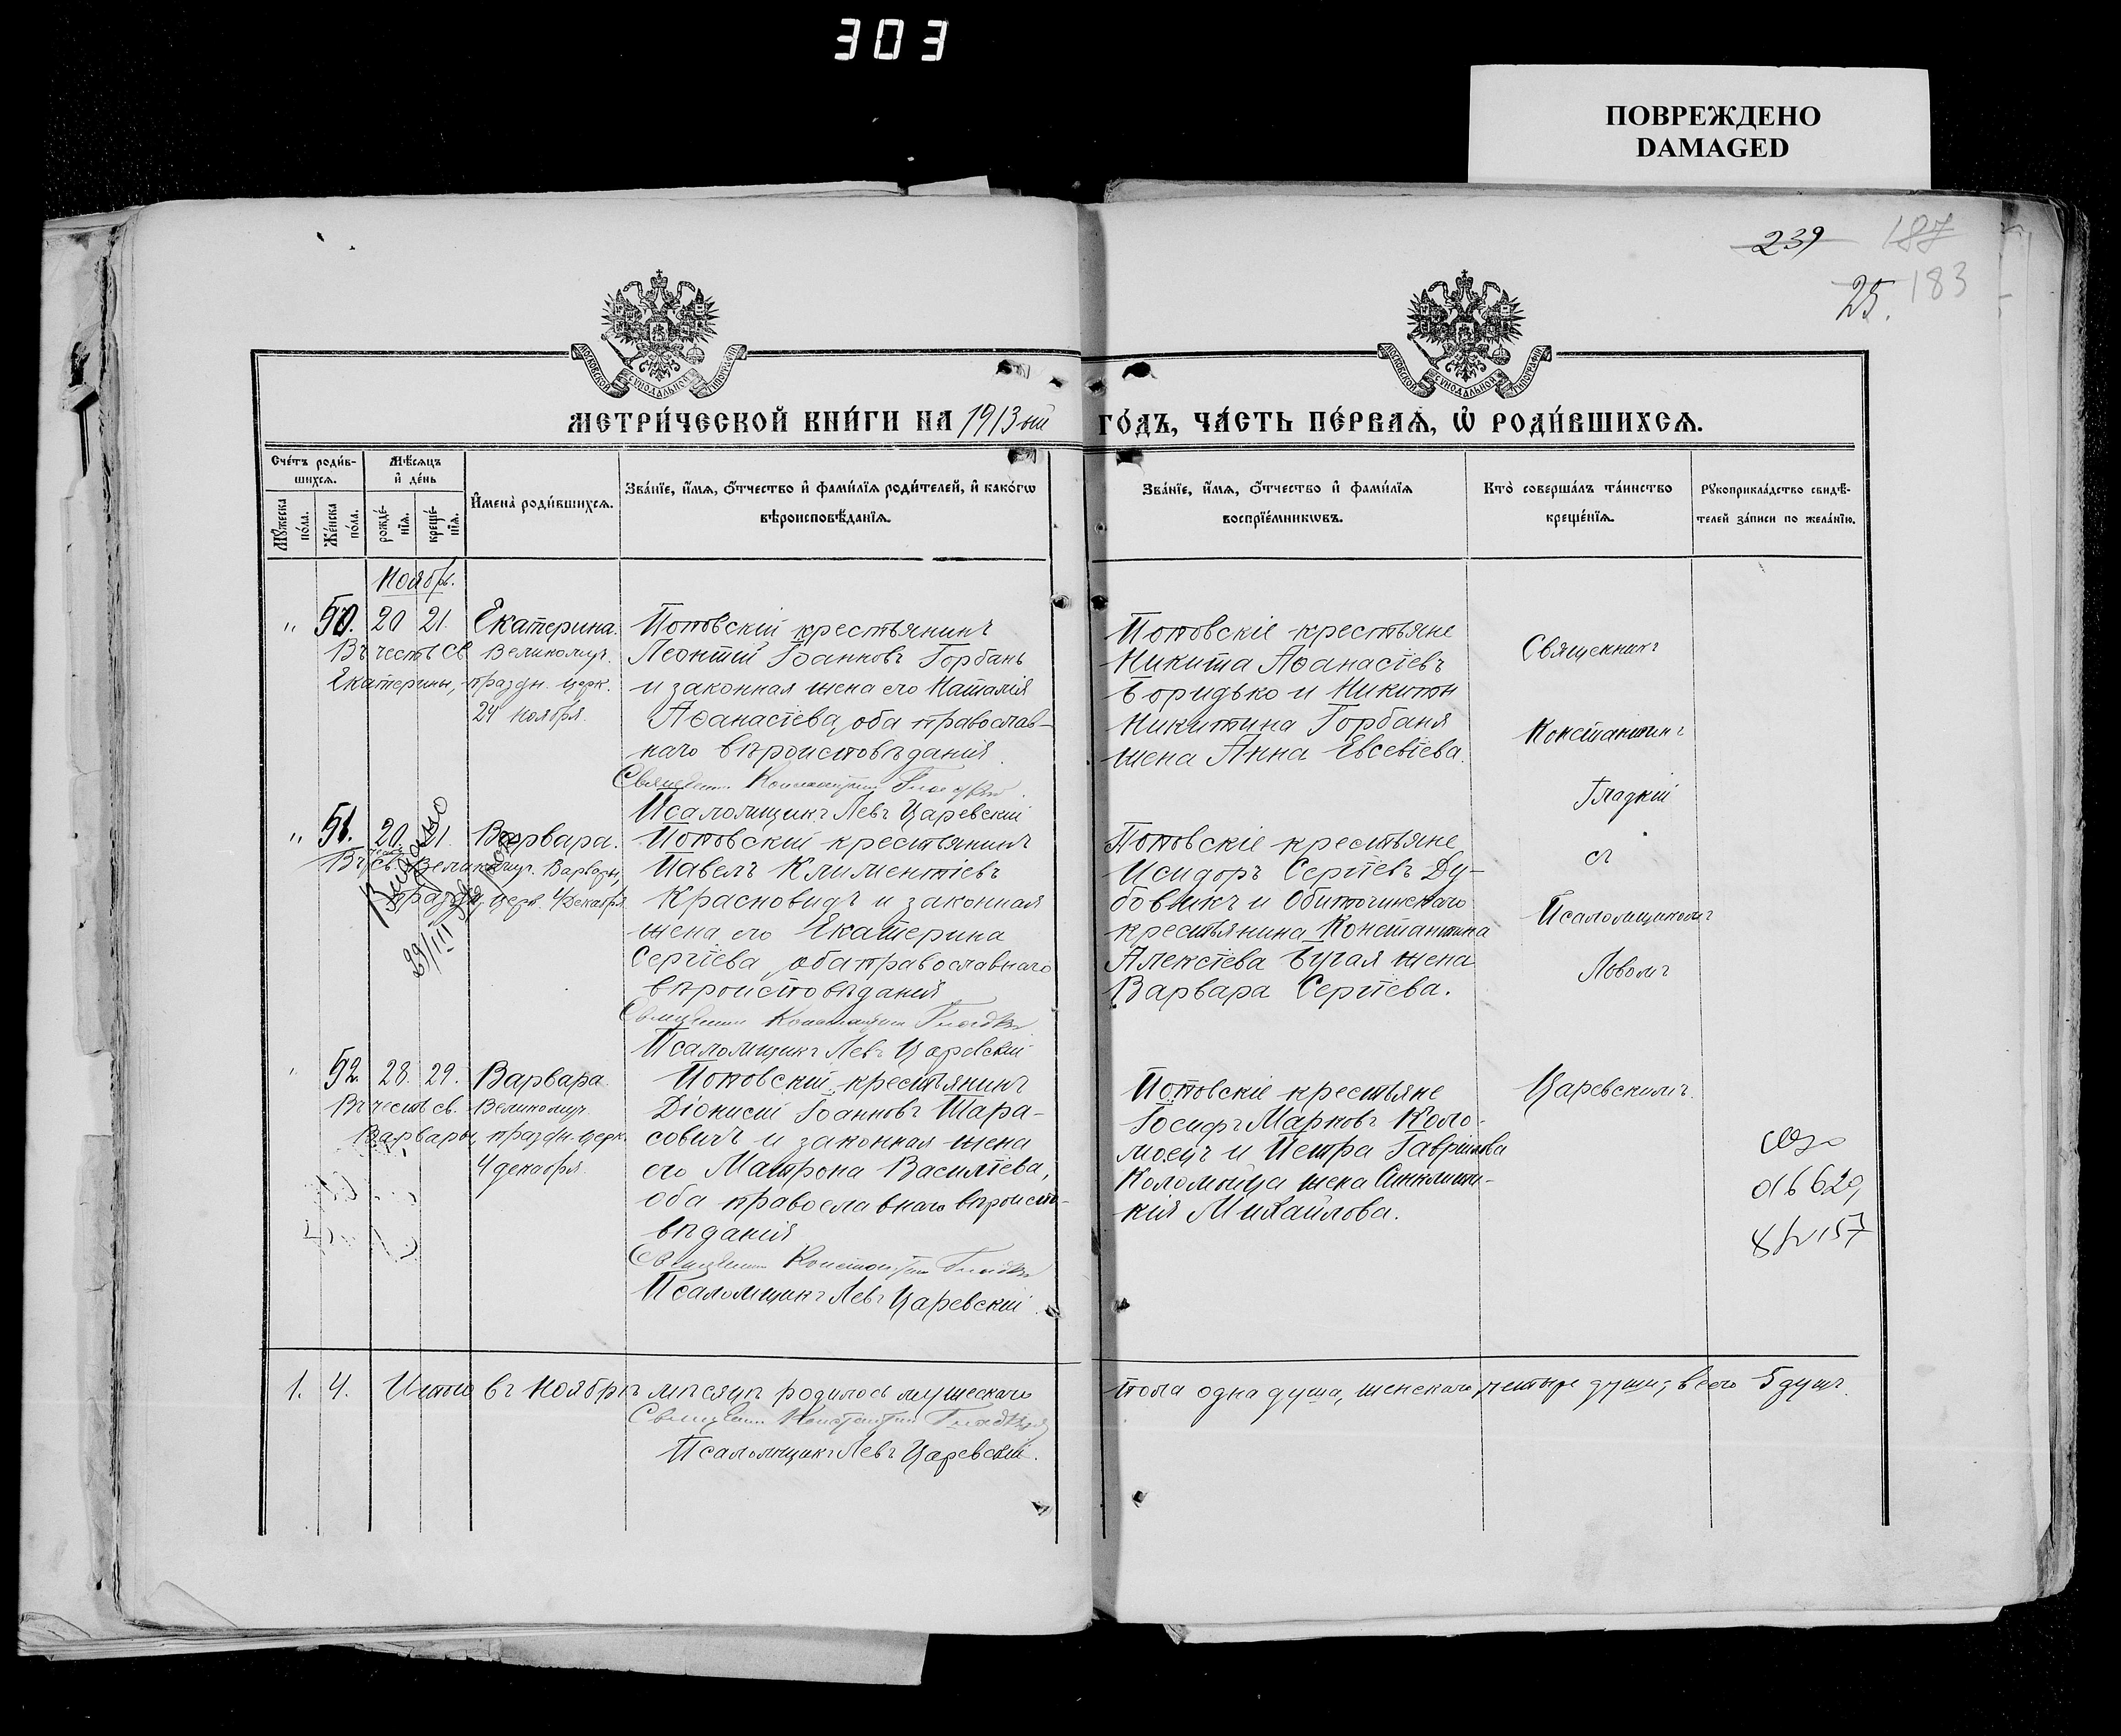 303
ПОВРЕЖДЕНО
DAMAGED
239
187
183
25.
МОСКОВСКОЙ СѴНОДАЛЬНОЙ ТИПОГРАФІИ
МОСКОВСКОЙ СѴНОДАЛЬНОЙ ТИПОГРАФІИ
МЕТРИ́ЧЕСКОЙ КНИ́ГИ НА 1913 ый ГО́ДЪ, ЧА́СТЬ ПЕ́РВАѦ, Ѡ҆ РОДИ́ВШИХСѦ.
Сче́тъ роди́в-
шихсѧ.
Мꙋ́жеска по́ла.
Же́нска по́ла.
Мѣ́сѧцъ
и҆ де́нь
рожде́-
нїѧ.
креще́-
нїѧ.
И҆мена̀ роди́вшихсѧ.
Зва́нїе, и҆́мѧ, ѻ҆́тчество и҆ фами́лїѧ роди́телей, и҆ како́гѡ
вѣроисповѣ́данїѧ.
Зва́нїе, и҆́мѧ, ѻ҆́тчество и҆ фами́лїѧ
воспрїе́мникѡвъ.
Кто̀ соверша́лъ та́инство
креще́нїѧ.
Рꙋкоприкла́дство свидѣ́-
телей за́писи по жела́нїю.
Ноябрь.
" 50. 20 21. Екатерина.
Въ честь св. Великомуч.
Екатерины, праздн. церк.
24 ноября.
Поповскій крестьянинъ
Леонтій Іоанновъ Горбань
и законная жена его Наталія
Аѳанасіева, оба православ-
наго вѣроисповѣданія.
Священ. Константинъ Гладкій
Псаломщикъ Левъ Царевскій
Поповскіе крестьяне
Никита Аѳанасіевъ
Боридько и Никиты
Никитина Горбаня
жена Анна Евсевіева.
Священникъ
Константинъ
Гладкій
съ
Псаломщикомъ
Львомъ
Царевскимъ.
" 51. 20. 21. Варвара.
Въ честь св. Великомуч. Варвары,
праздн. церк. 4 Декабря.
Выдано
29/III
Поповскій крестьянинъ
Павелъ Климентіевъ
Красновидъ и законная
жена его Екатерина
Сергіева, оба православнаго
вѣроисповѣданія
Священ. Константинъ Гладкій
Псаломщикъ Левъ Царевскій
Поповскіе крестьяне
Исидоръ Сергіевъ Ду-
бовикъ и Обиточинскаго
крестьянина Константина
Алексіева Бугая жена
Варвара Сергіева.
" 52. 28. 29. Варвара.
Въ честь св. Великомуч.
Варвары, праздн. церк.
4 декабря.
Поповскій крестьянинъ
Діонисій Іоанновъ Тара-
совичъ и законная жена
его Матрона Василіева,
оба православнаго вѣроиспо-
вѣданія
Священ. Константинъ Гладкій
Псаломщикъ Левъ Царевскій.
Поповскіе крестьяне
Іосифъ Марковъ Коло-
моецъ и Петра Гавріилова
Коломойца жена Синклити-
кія Михайлова.
1. 4. Итого въ Ноябрѣ мѣсяцѣ родилось мужескаго пола одна душа, женскаго четыре души; всего 5 душъ.
Священ. Константинъ Гладкій
Псаломщикъ Левъ Царевскій.